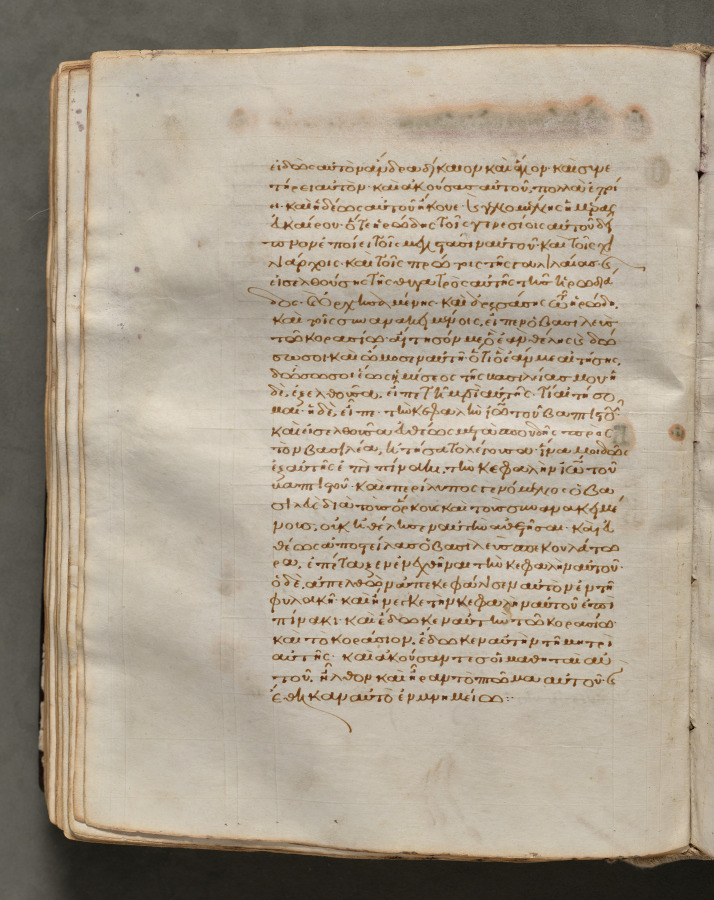 εἰδὼς αὐτὸν ἄνδρα δίκαιον καὶ ἅγιον· καὶ συνε
τήρει αὐτὸν· καὶ ἀκούσας αὐτοῦ, πολλὰ ἐποί
ει· καὶ ἡδέως αὐτοῦ ἤκουε· καὶ γενομένης ἡμέρας
εὐκαίρου· ὅτε ἡρώδης τοῖς γενεσίοις αὐτοῦ δεῖ
πνον ἐποίει τοῖς μεγιστᾶσιν αὐτοῦ· καὶ τοῖς χι
λιάρχοις· καὶ τοῖς πρώτοις τῆς γαλιλαίας· καὶ
εἰσελθούσης τῆς θυγατρὸς αὐτῆς τῆς ἡρωδιά
δος· καὶ ὀρχησαμένης· καὶ ἀρεσάσης τῷ ἡρώδη,
καὶ τοῖς συνανακειμένοις, εἶπεν ὁ βασιλεὺς
τῷ κορασίῳ· αἴτησόν με ὃ ἐὰν θέλης καὶ δώ
σω σοι καὶ ὤμοσεν αὐτῆ· ὅτι ὃ ἐάν με αἰτήσης,
δώσω σοι ἕως ἡμίσεος τῆς βασιλείας μου· ἡ
δὲ, ἐξελθοῦσα, εἶπε τῆ μρὶ αὐτῆς· τί αἰτήσο
μαι· ἡ δὲ, εἶπε· τὴν κεφαλὴν ἰω τοῦ βαπτιστοῦ·
καὶ εἰσελθοῦσα εὐθέως μετὰ σπουδῆς πρὸς
τὸν βασιλέα, ἠτήσατο λέγουσα· ἵνα μοι δῶς
ἐξαυτῆς ἐπὶ πίνακι, τὴν κεφαλὴν ἰω τοῦ
βαπτιστοῦ· καὶ περίλυπος γενόμενος ὁ βα
σιλεὺς διὰ τοὺς ὅρκους καὶ τοὺς συνανακειμέ
νους, οὐκ ἠθέλησεν αὐτὴν ἀθετῆσαι· καὶ εὐ
θέως ἀποστείλας ὁ βασιλεὺς σπεκουλάτω
ρα, ἐπέταξεν ἐνεχθῆναι τὴν κεφαλὴν αὐτοῦ·
ὁ δὲ, ἀπελθὼν ἀπεκεφάλισεν αὐτὸν ἐν τῆ
φυλακῆ· καὶ ἤνεγκε τὴν κεφαλὴν αὐτοῦ ἐπὶ
πίνακι· καὶ ἔδωκεν αὐτὴν τῷ κορασίῳ·
καὶ τὸ κοράσιον, ἔδωκεν αὐτὴν τῆ μητρὶ
αὐτῆς· καὶ ἀκούσαντες οἱ μαθηταὶ αὐ
τοῦ, ἦλθον καὶ ἦραν τὸ πτῶμα αὐτοῦ· καὶ
ἔθηκαν αὐτὸ ἐν μνημείῳ:·